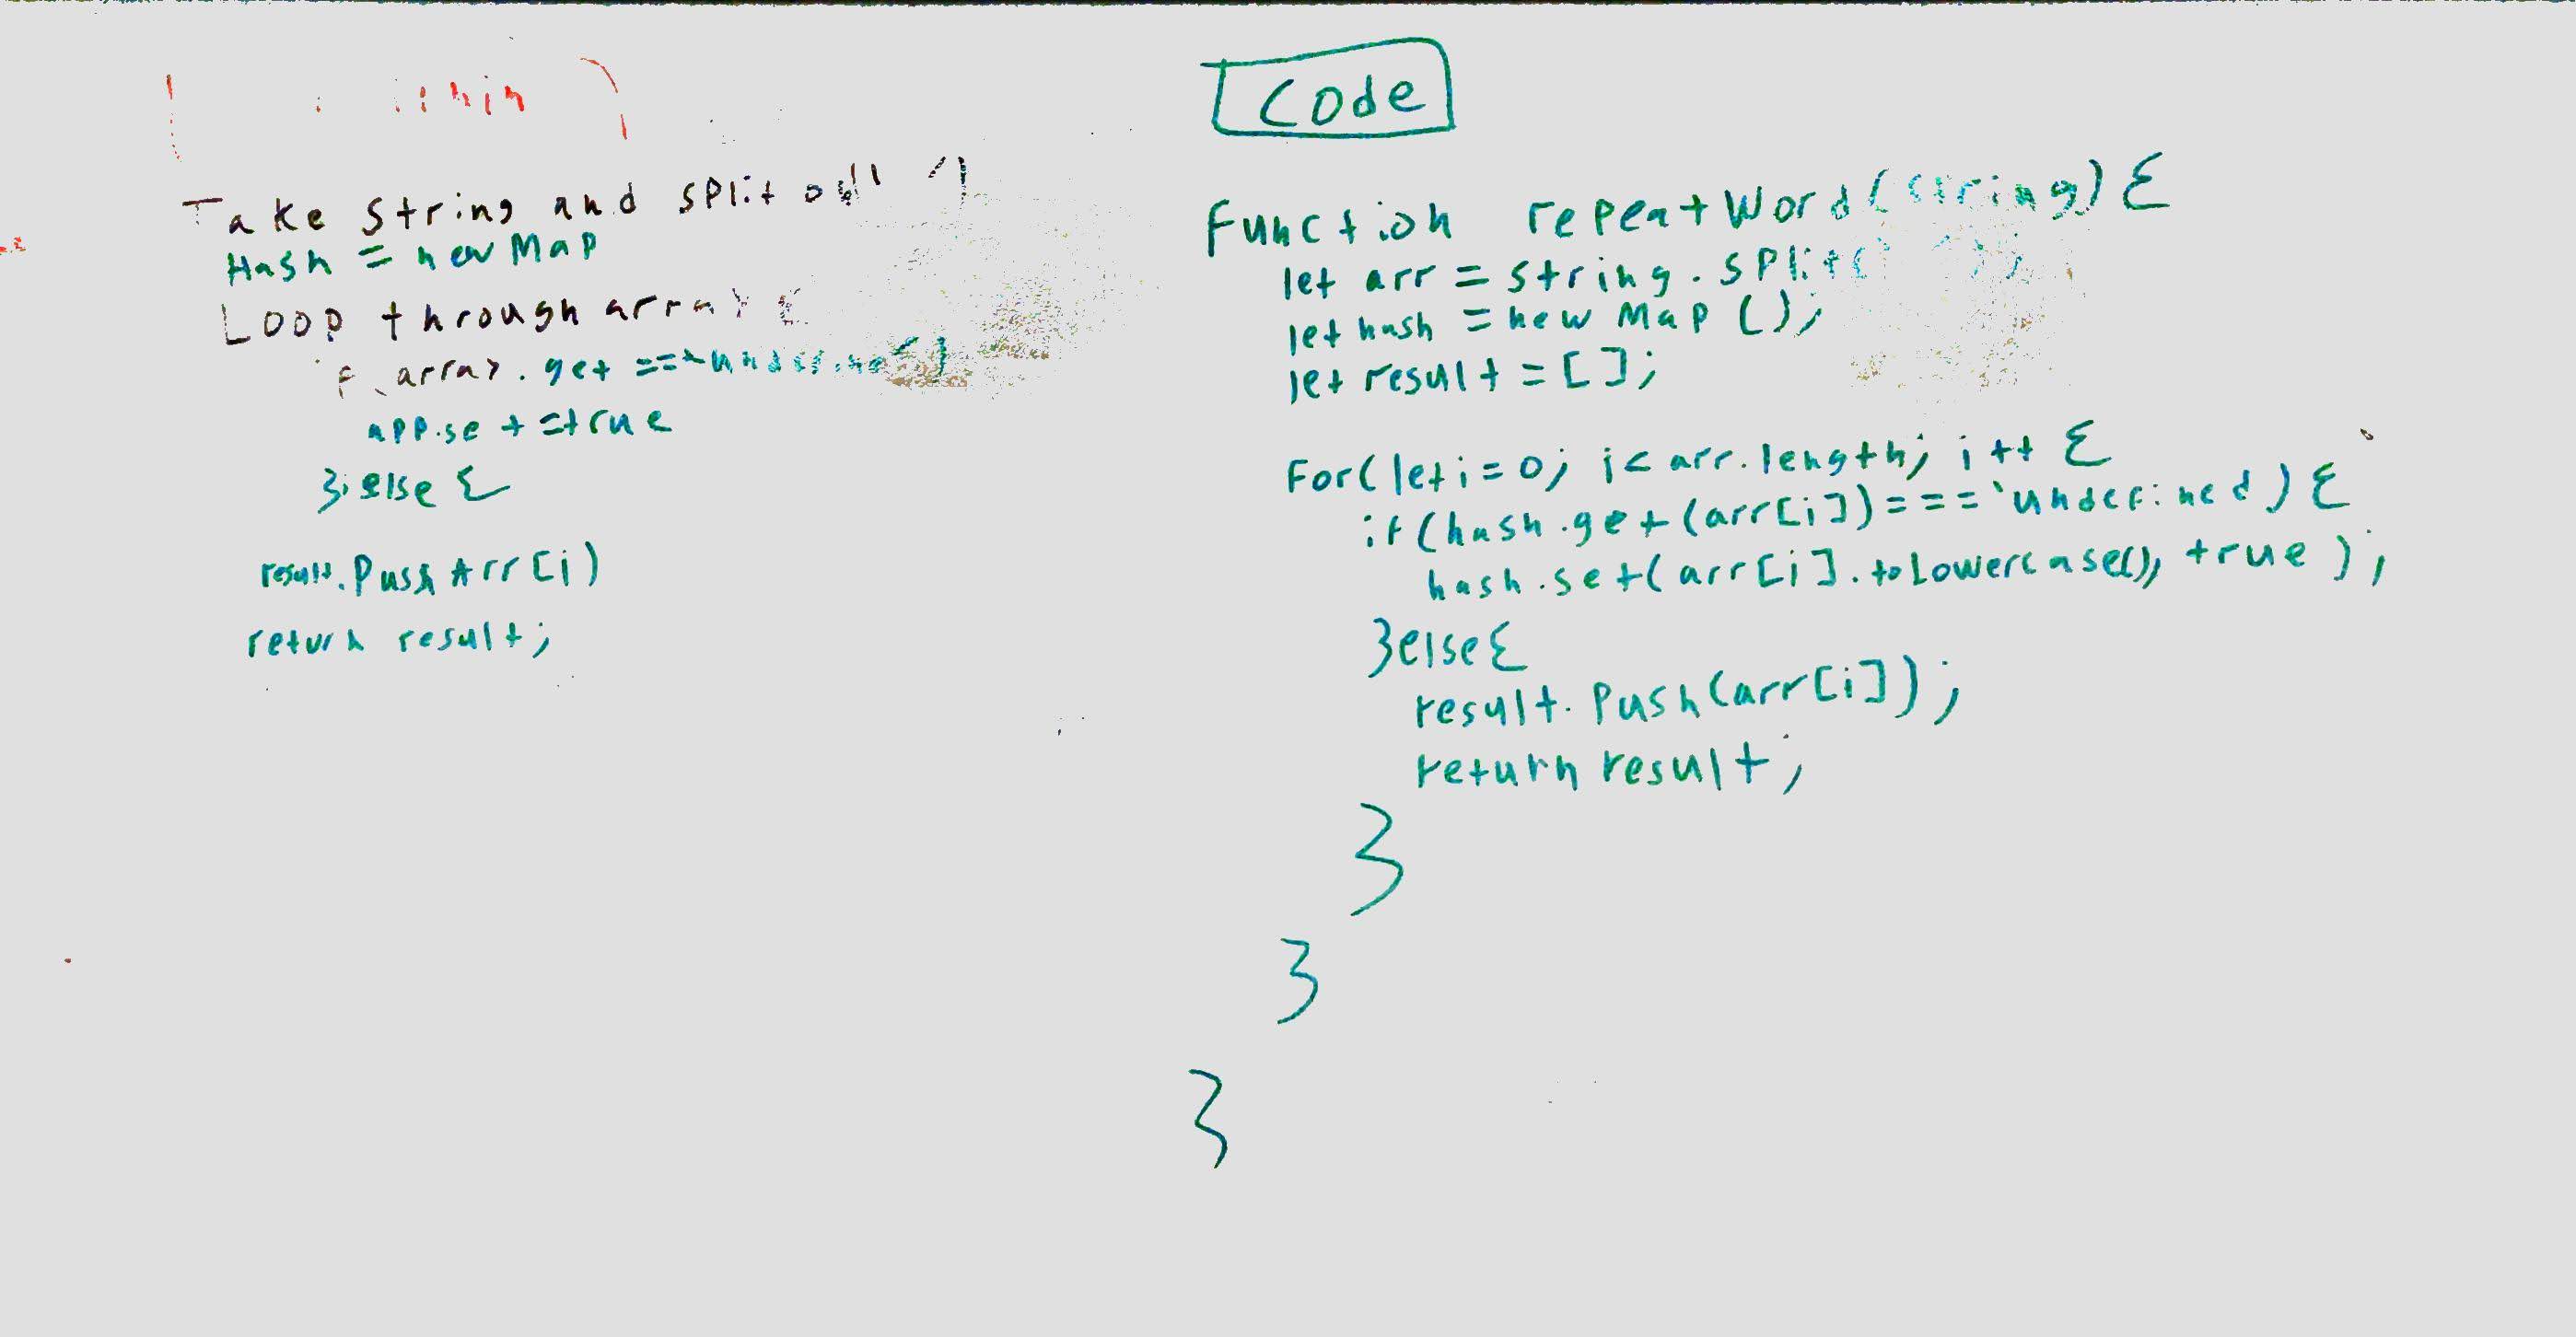 Take string and split on ' '
Hash = new Map
Loop through array
array.get === undefined
app.set = true
}; else {
result.Push Arr[i)
return result;
Code
Function repeatWord(string) {
let arr = string.split(
let hash = new Map ();
let result = [];
For(let i = 0; i < arr.length; i++ {
if(hash.get(arr[i])==='undefined) {
hash.set(arr[i].toLowercase(), true);
}else{
result.Push(arr[i]);
return result;
}
}
}